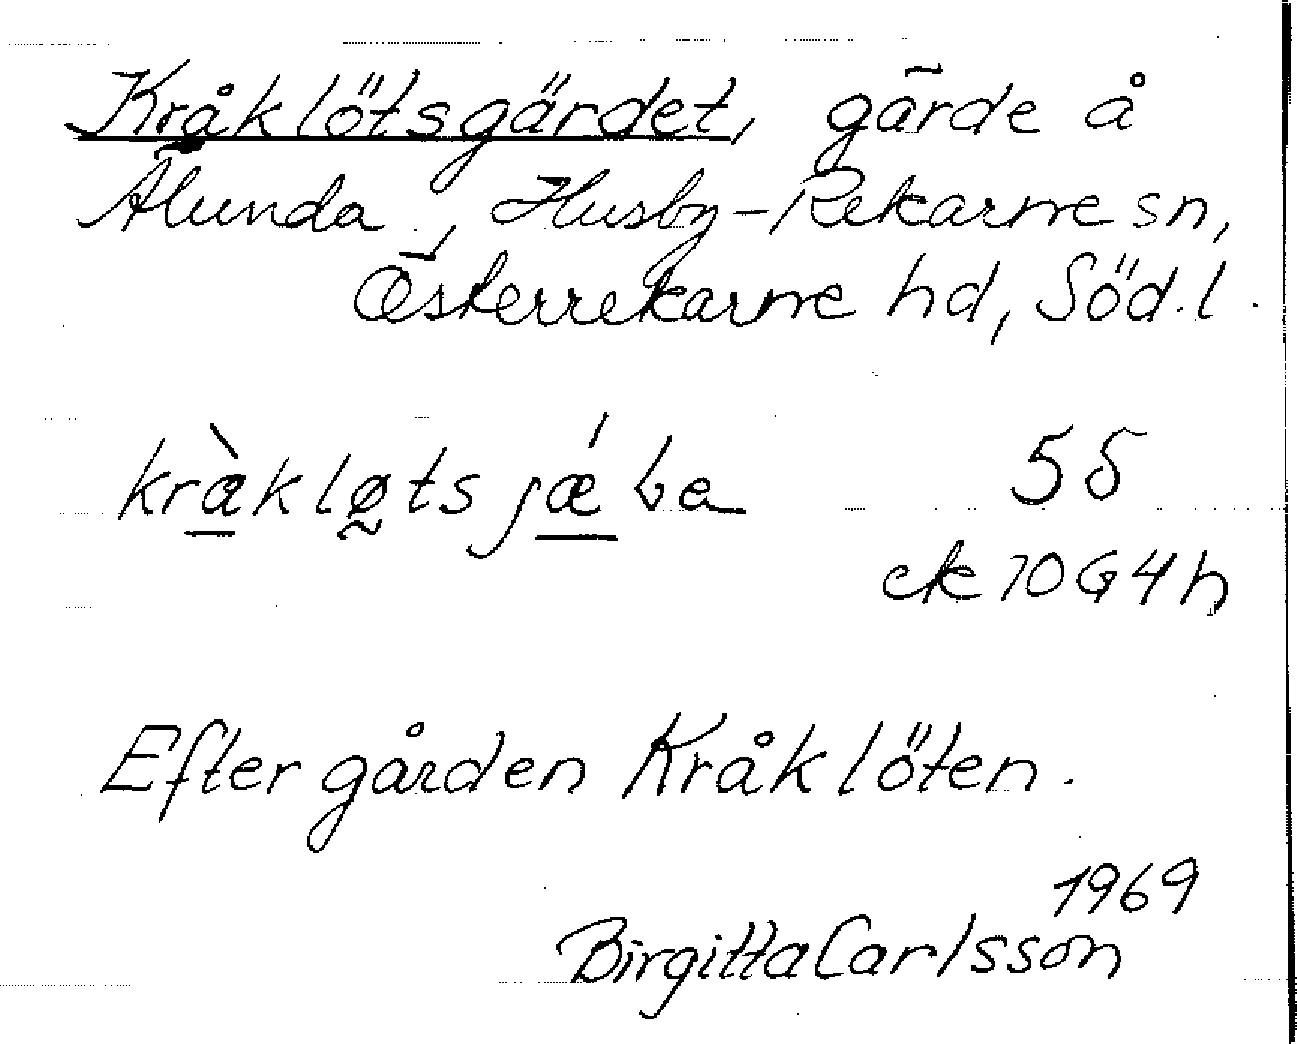 Kråklötsgärdet, gärde å
Ålunda, Husby-Rekarne sn,
Österrekarne hd, Söd.l.
5δ
ek 10G4h
Efter gården Kråklöten.
1969
Birgitta Carlsson